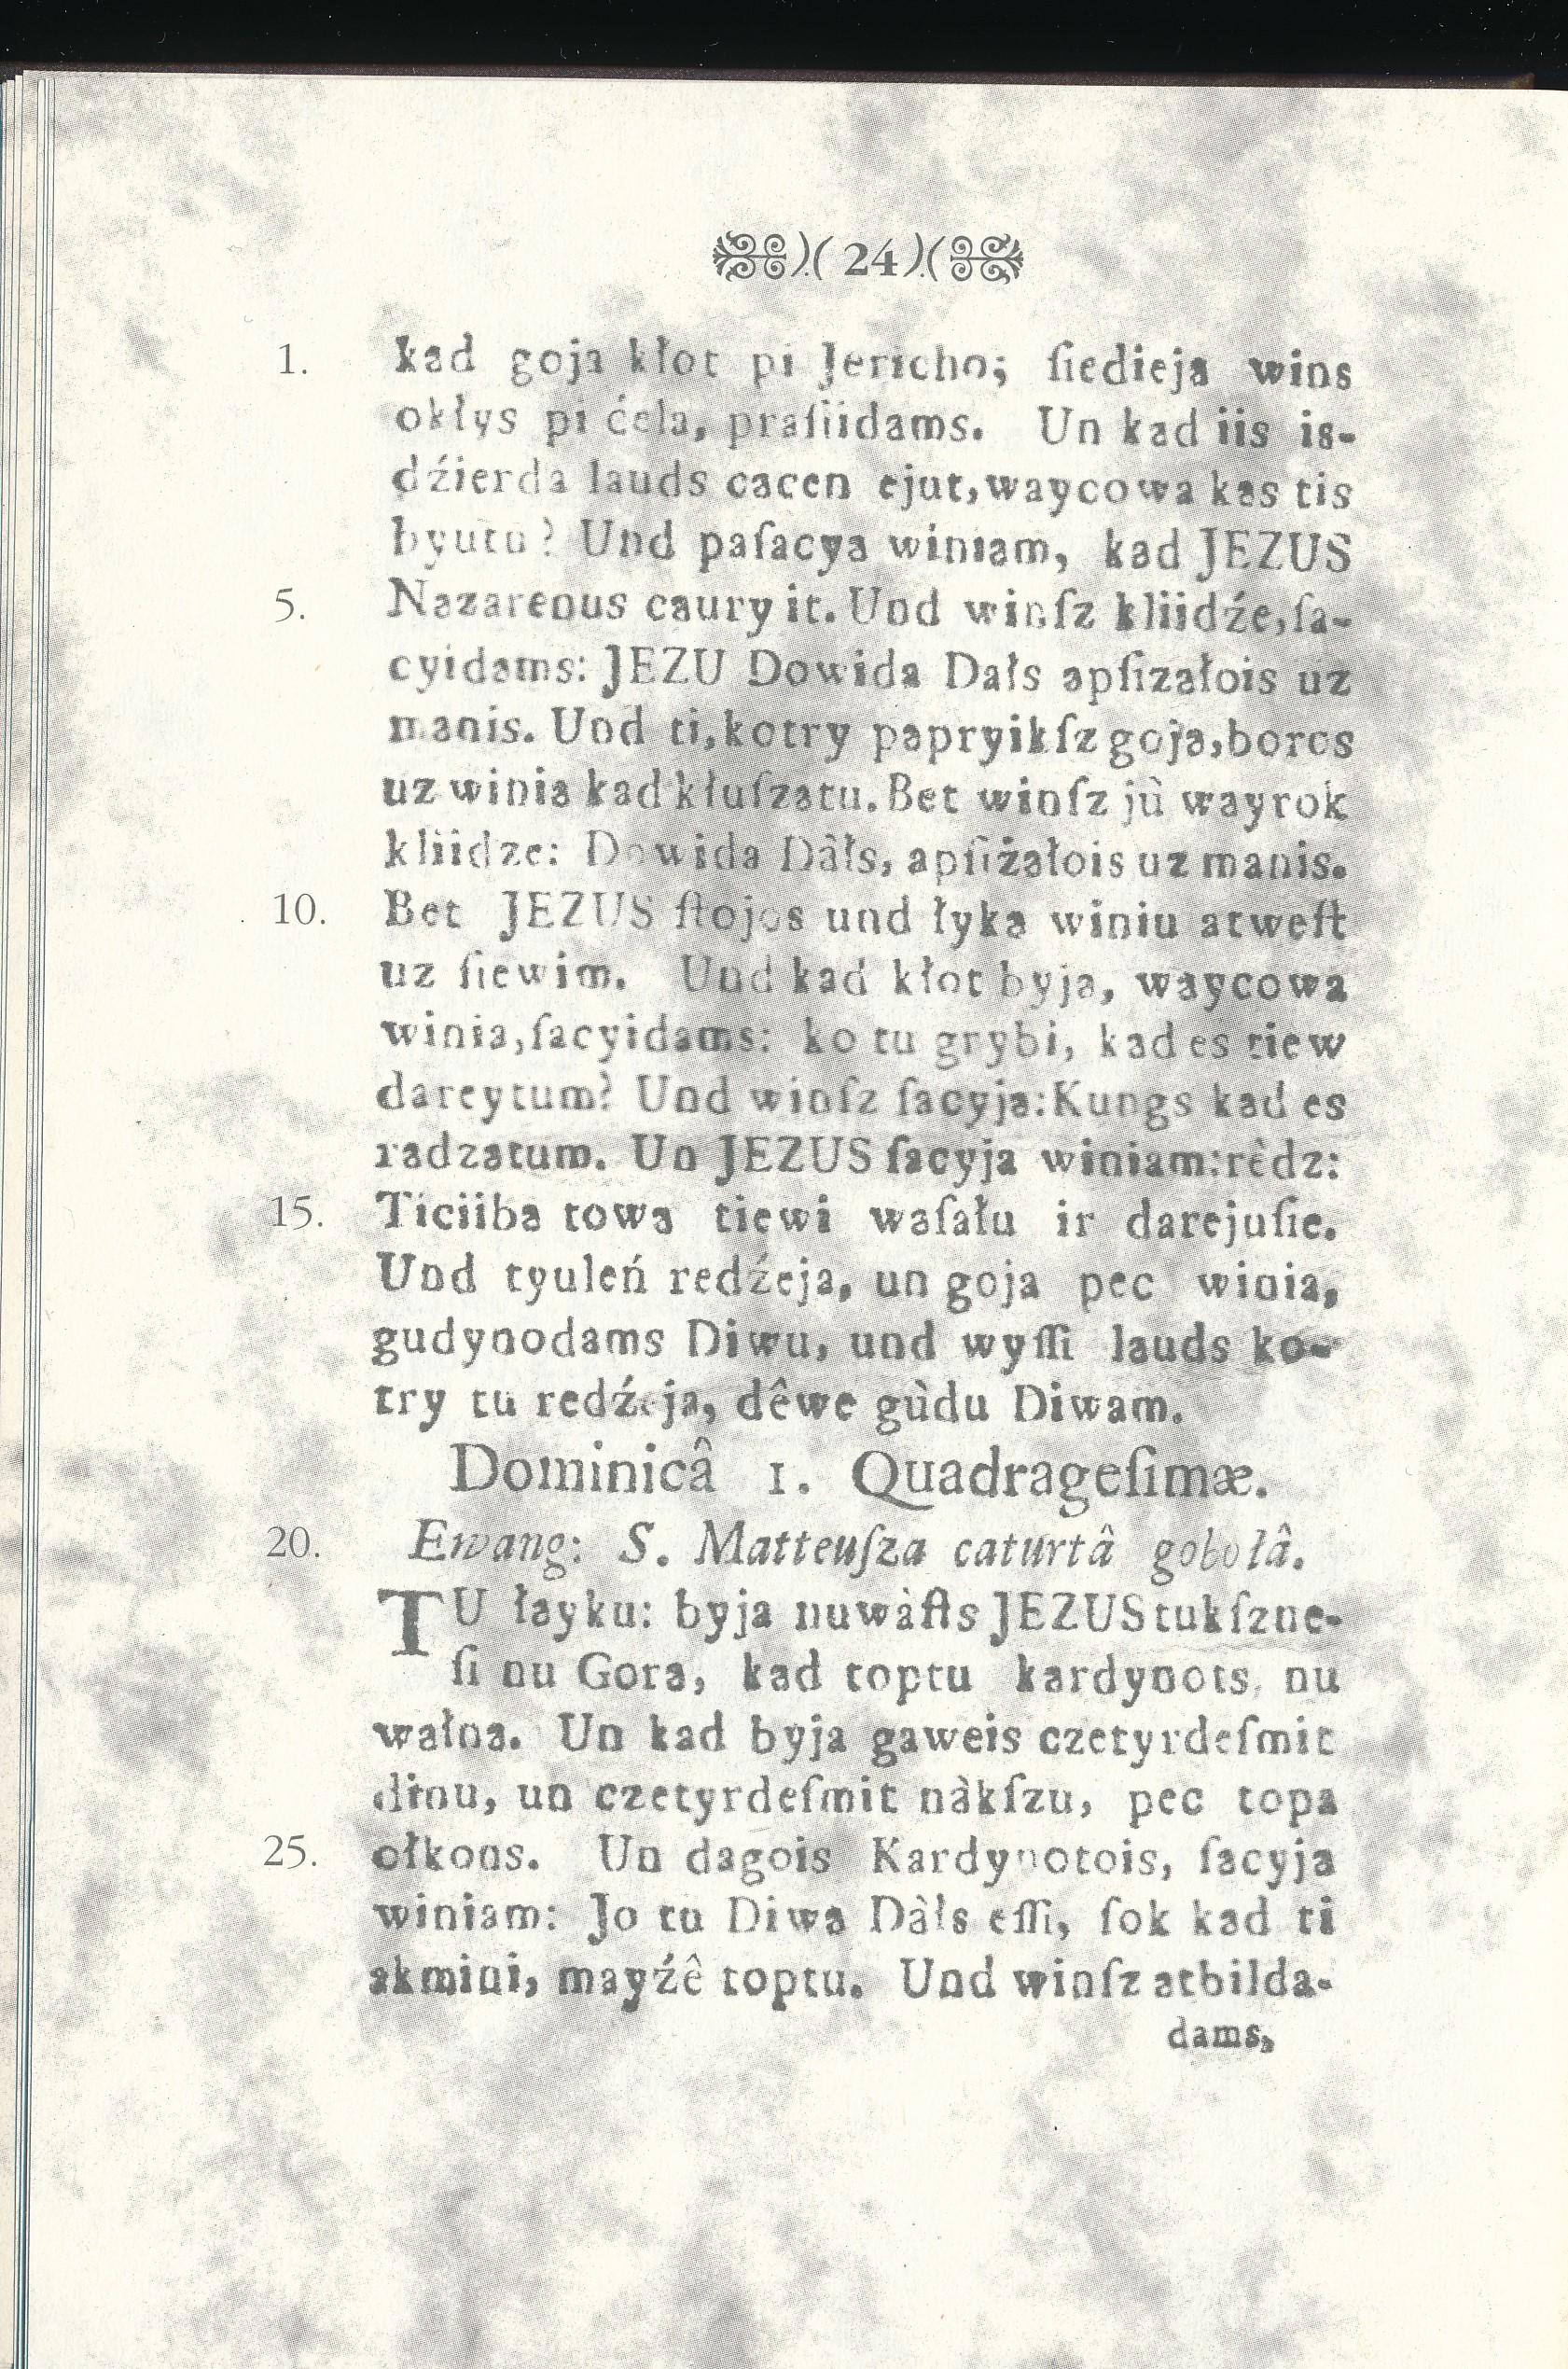 )( 24 )(
1. kad goja kłot pi Jericho; ſiedieja wins
okłys pi ćela, praſiidams. Un kad iis is-
dźierda lauds cacen ejut, waycowa kas tis
byutu? Und paſacya winiam, kad JEZUS
5. Nazarenus caury it. Und winſz kliidźe, ſa-
cyidams: JEZU Dowida Dałs apſizałois uz
manis. Und ti, kotry papryikſz goja, boros
uz winia kad kłuſzatu. Bet winſz jù wayrok
kliidze: Dowida Dâłs, apſiżałois uz manis.
10. Bet JEZUS ſtojos und łyka winiu atweſt
uz ſiewim. Und kad kłot byja, waycowa
winia, ſacyidams: ko tu grybi, kad es tiew
dareytum? Und winſz ſacyja: Kungs kad es
radzatum. Un JEZUS ſacyja winiam: rêdz:
15. Ticiiba towa tiewi waſału ir darejuſie.
Und tyuleń redźeja, un goja pec winia,
gudynodams Diwu, und wyſſi lauds ko-
try tu redźeja, dêwe gùdu Diwam.
Dominicâ 1. Quadrageſimæ.
20. Ewang: S. Matteuſza caturtâ gobołâ.
TU łayku: byja nuwàſts JEZUS tukſzne-
ſi nu Gora, kad toptu kardynots nu
wałna. Un kad byja gaweis czetyrdeſmit
dinu, un czetyrdeſmit nàkſzu, pec topa
25. ołkons. Un dagois Kardynotois, ſacyja
winiam: Jo tu Diwa Dàłs eſſi, ſok kad ti
akmini, mayźê toptu. Und winſz atbilda-
dams,